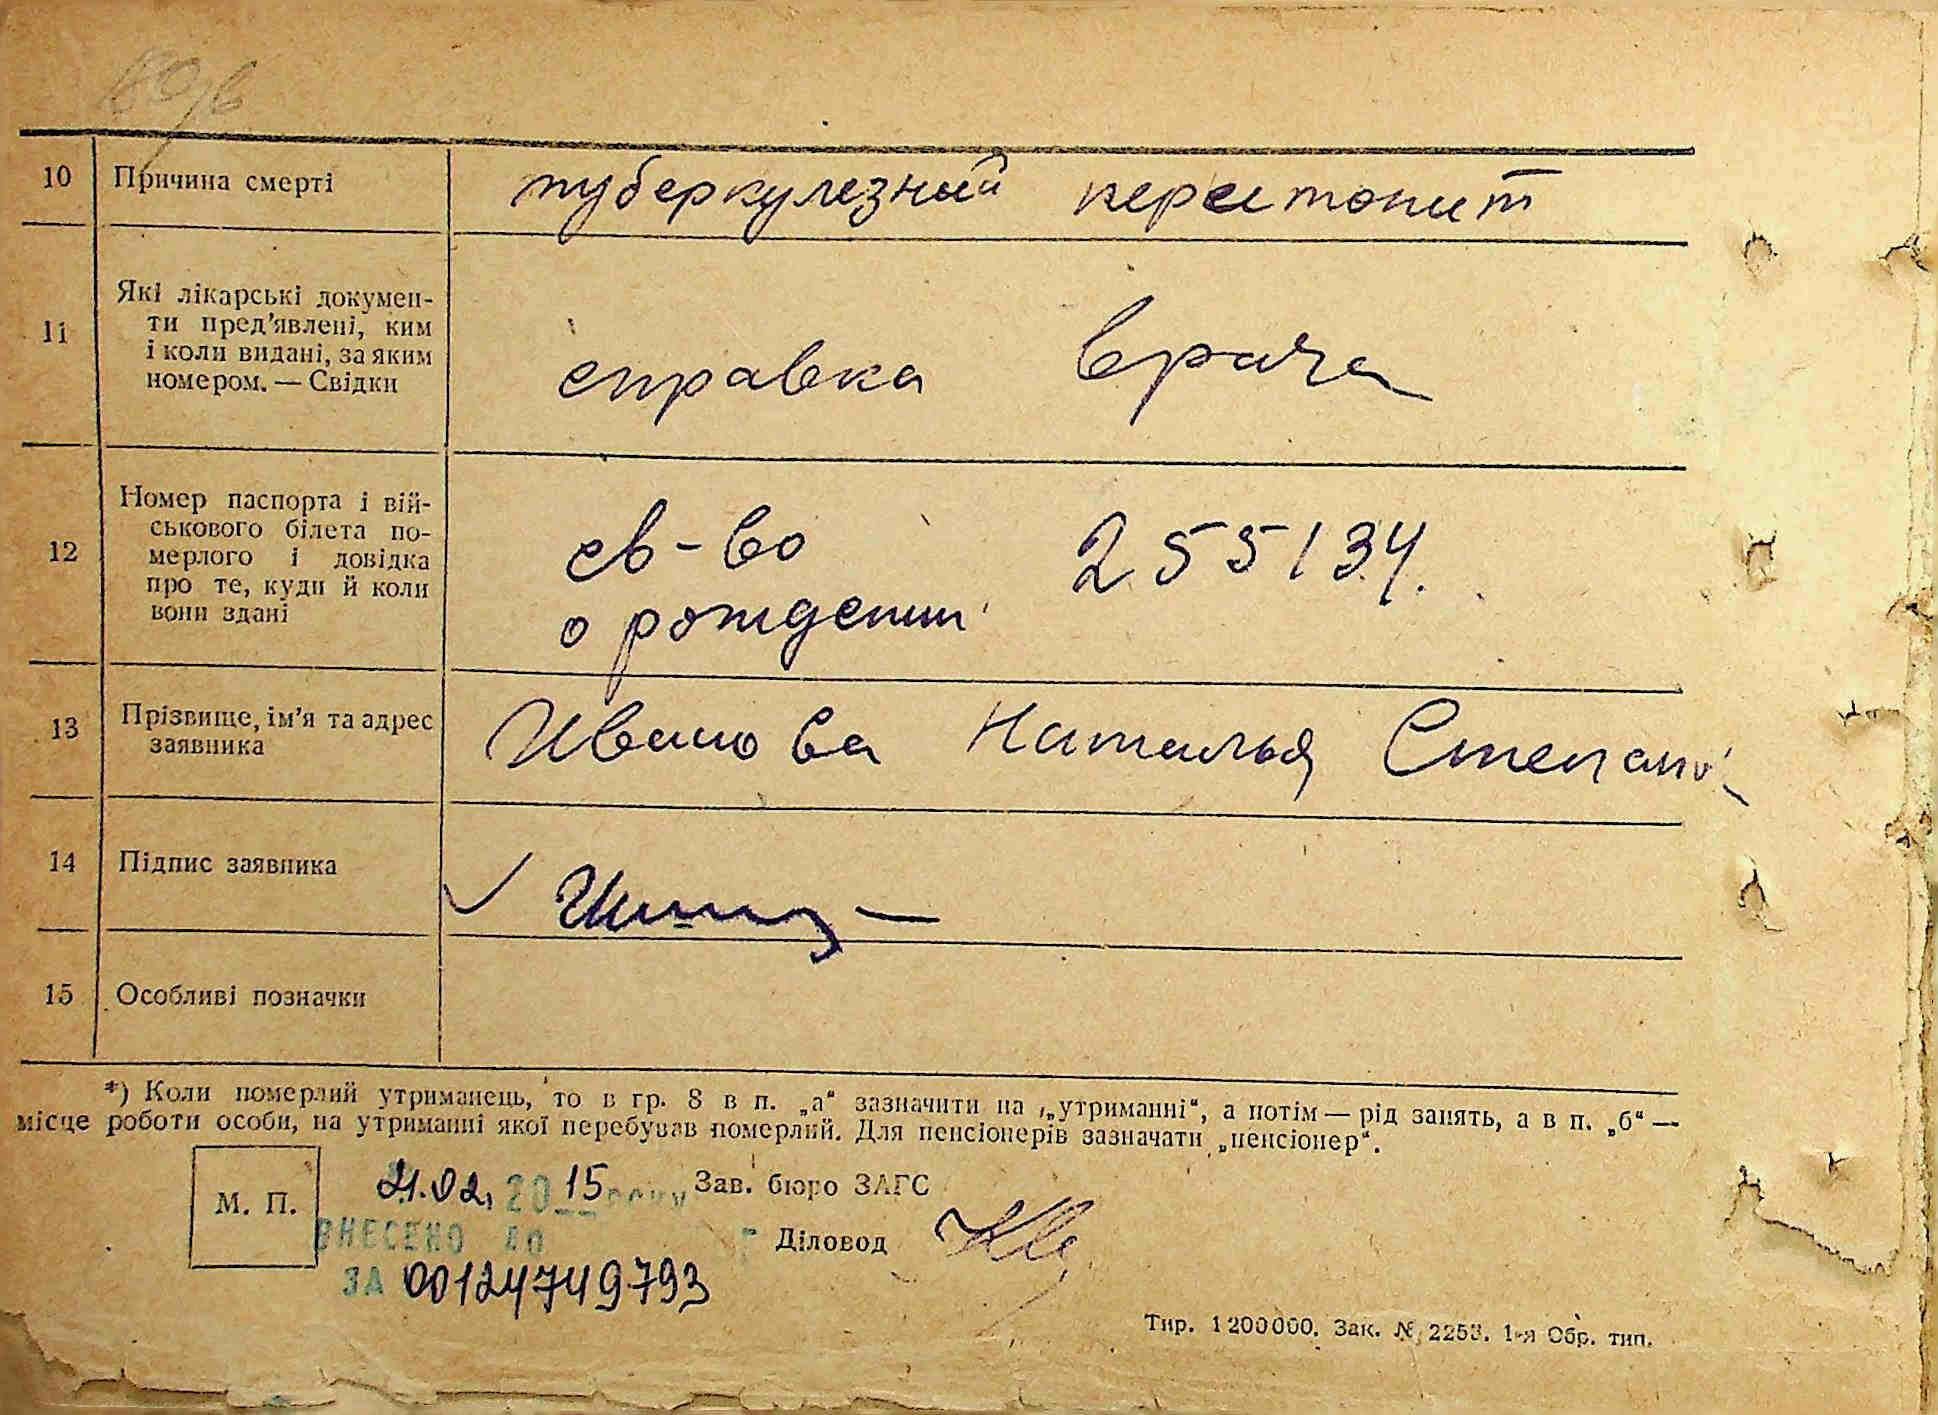 10 Причина смерті туберкулезный перитонит
11 Які лікарські докумен-
ти пред'явлені, ким
і коли видані, за яким
номером. — Свідки
справка врача
12 Номер паспорта і вій-
ськового білета по-
мерлого і довідка
про те, куди й коли
вони здані
св-во 255134.
о рождении
13 Прізвище, ім'я та адрес
заявника
Иванова Наталья Степан.
14 Підпис заявника
15 Особливі позначки
*) Коли померлий утриманець, то в гр. 8 в п. „а“ зазначити на „утриманні“, а потім — рід занять, а в п. „б“ —
місце роботи особи, на утриманні якої перебував померлий. Для пенсіонерів зазначати „пенсіонер“.
М. П.
21.02. 2015 року
Зав. бюро ЗАГС
ВНЕСЕНО до
Діловод
ЗА 00124749793
Тир. 1200000. Зак. № 2253. 1-я Обр. тип.